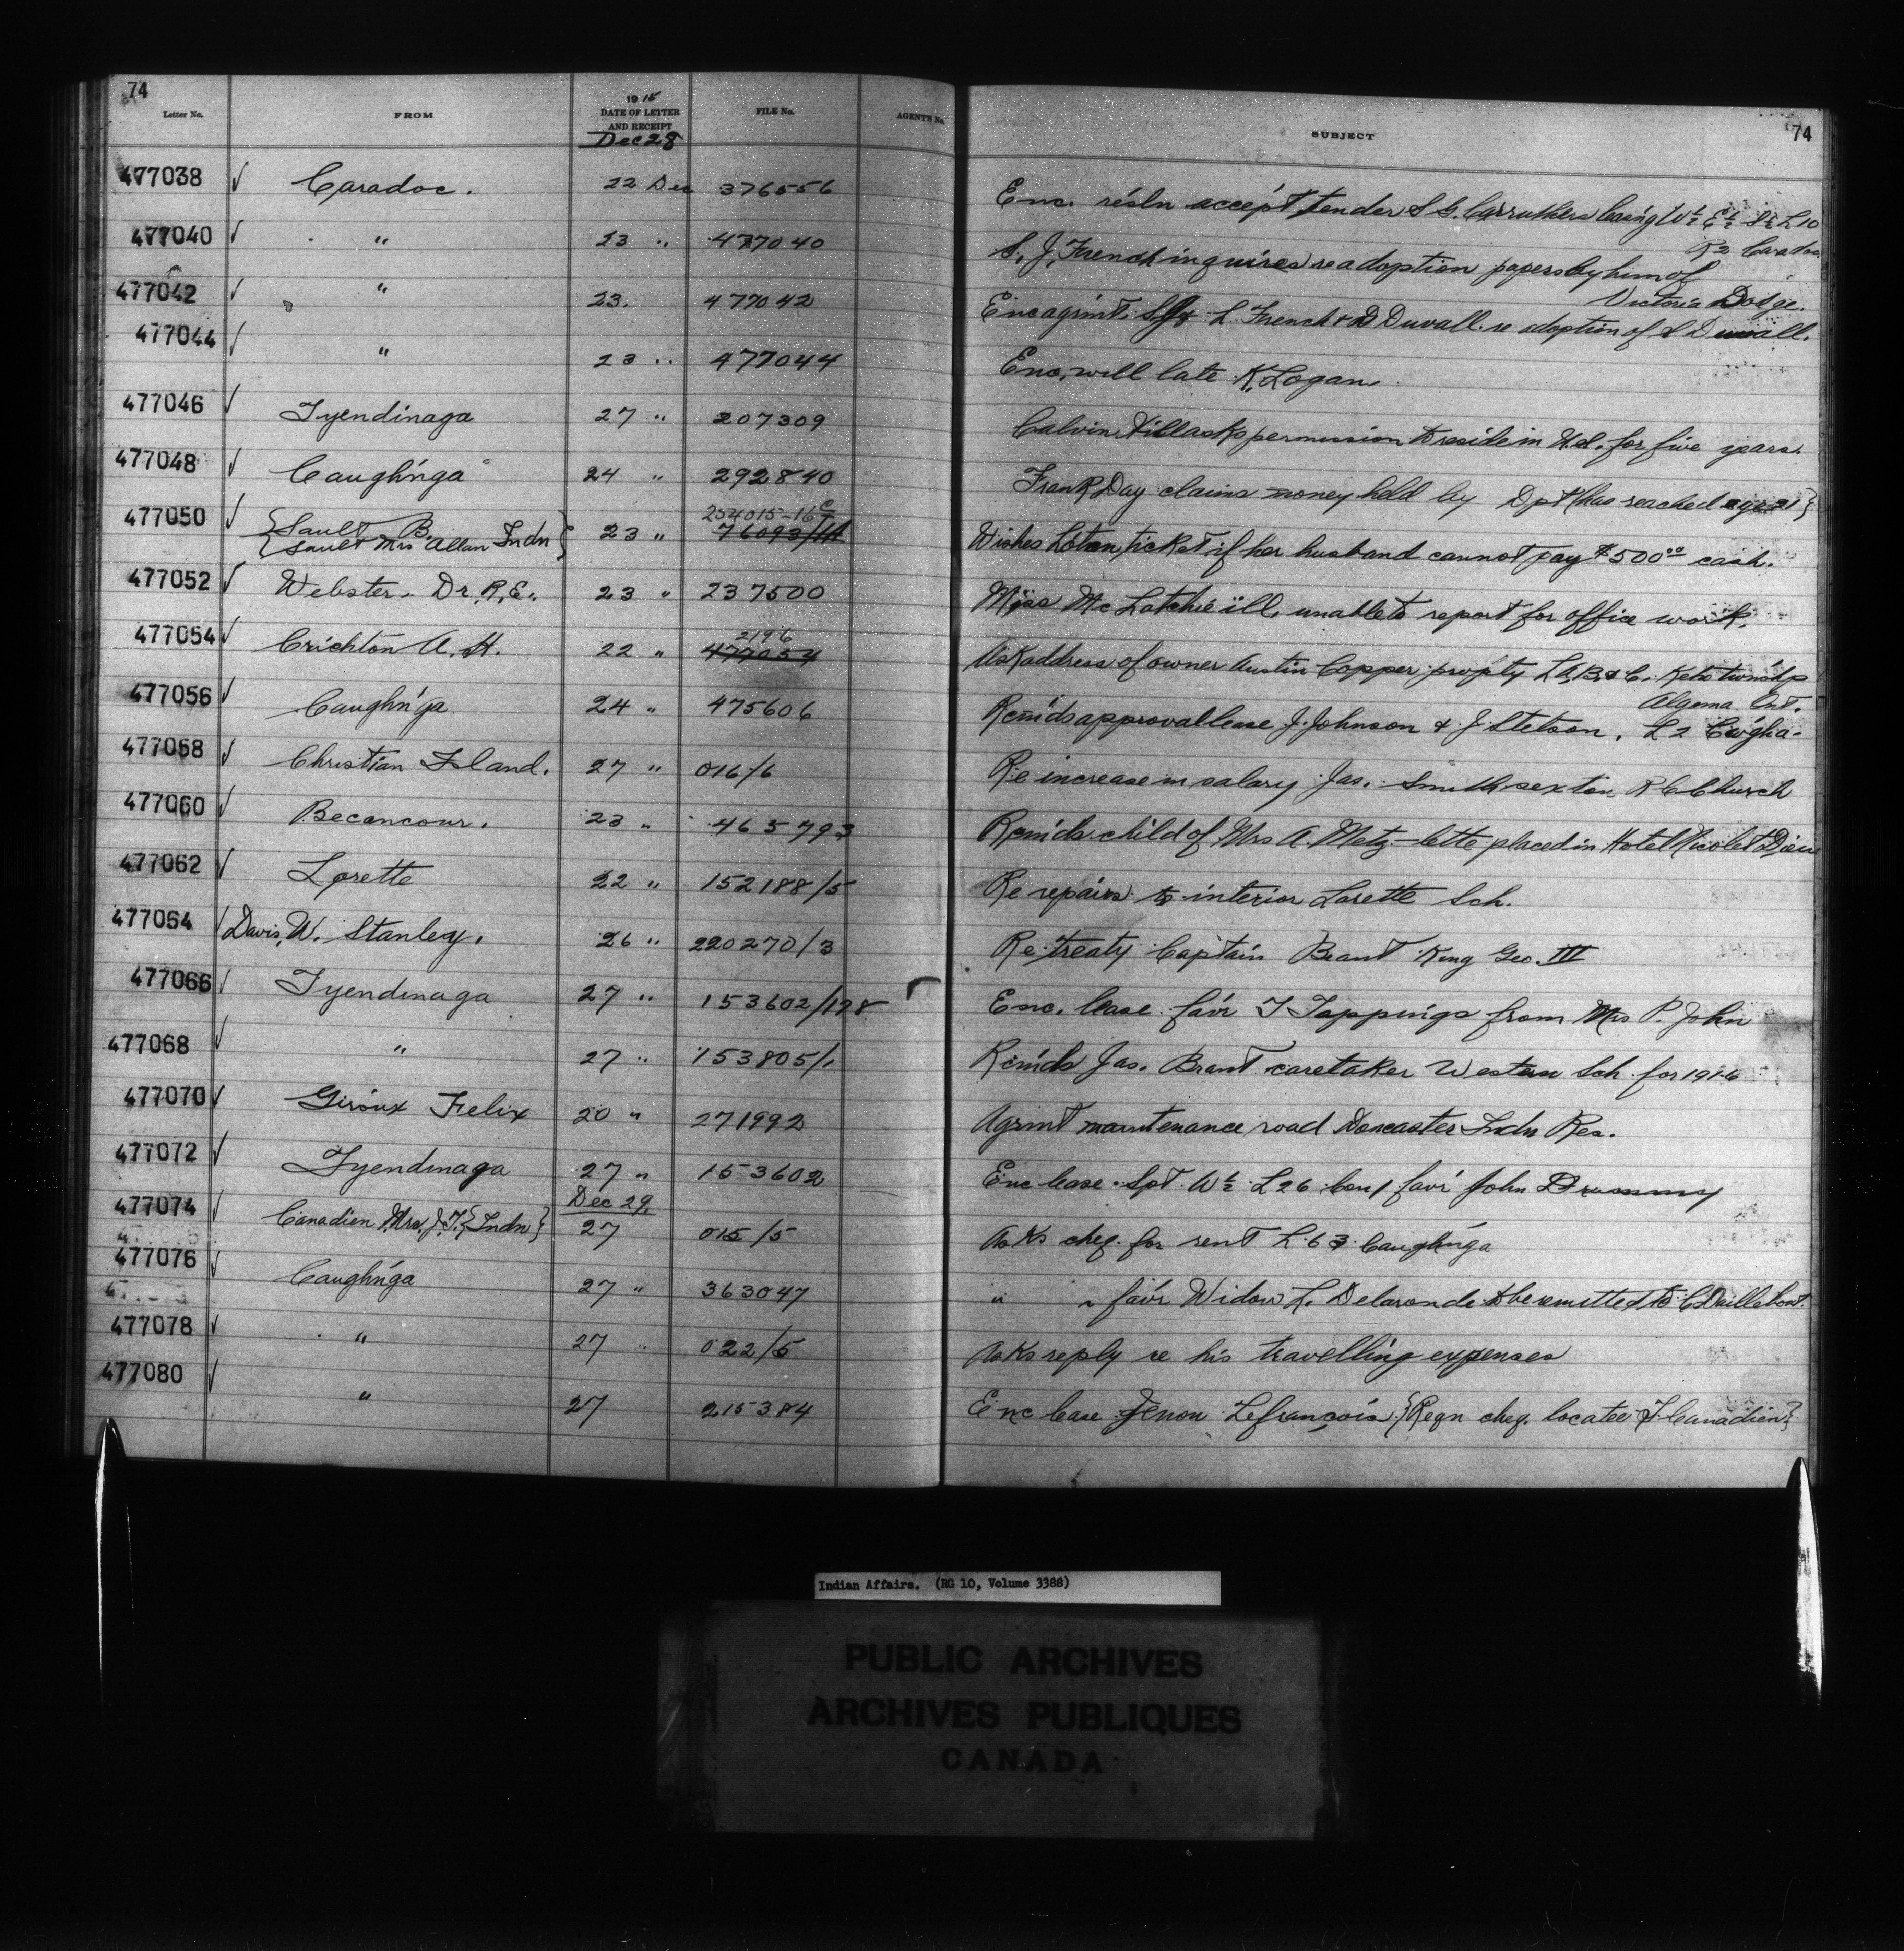 74
Letter No. FROM 1915 DATE OF LETTER AND RECEIPT FILE No. AGENT'S No. SUBJECT 74
Dec 28
477038 ✓ Caradoc. 22 Dec 376556 Enc. résln accep't tender S G. Carruthers leasing W½ E½ S½ L10
R2 Caradoc
477040 ✓ " 23 " 477040 S. J. French inquires re adoption papers by him of
Victoria Dodge.
477042 ✓ " 23. 477042 Enc agrmt. L. French & D Duvall. re adoption of L Duvall.
477044 ✓ " 23 " 477044 Enc. will late K. Logan.
477046 ✓ Tyendinaga 27 " 207309 Calvin Hill asks permission to reside in U.S. for five years.
477048 ✓ Caughn'ga 24 " 292840 Frank Day claims money held by Dpt (has reached age 21}
477050 ✓ {Sault B. 23 " 254015-16 C/T
{Sault Mrs Allan Indn} 76093/14 Wishes Lotcn ticket if her husband cannot pay $500 00 cash.
477052 ✓ Webster. Dr. R. E. 23 " 237500 Miss McLatchie ill, unable to report for office work.
477054 ✓ Crichton A. H. 22 " 2196
477054 Ask address of owner Austin Copper prop'ty L A, B & C. Township
Algoma Ont.
477056 ✓ Caughn'ga 24 " 475606 Rcm'ds approval lease J. Johnson & J. Stetson. L 2 C'wgha-
477058 ✓ Christian Island. 27 " 016/6 Re increase in salary Jas. Smith sexton R C Church
477060 ✓ Becancour. 23 " 465793 Rcm'ds child of Mrs A. Metz-lette placed in Hotel Nicolet Dieu
477062 ✓ Lorette 22 " 152188/5 Re repairs to interior Lorette Sch.
477064 ✓ Davis, W. Stanley. 26 " 220270/3 Re treaty Captain Brant King Geo. III
477066 ✓ Tyendinaga 27 " 153602/198 Enc. lease fav'r T Tappings from Mrs P. John
477068 ✓ " 27 " 153805/1 Rcm'ds Jas. Brant caretaker Western Sch for 1916
477070 ✓ Giroux Felix 20 " 271992 Agrmt maintenance road Doncaster Indn Res.
477072 ✓ Tyendinaga 27 " 153602 Enc lease Spt. W½ L 26 Con 1 fav'r John Brummy
Dec 29.
477074 ✓ Canadien Mrs. J. T. {Indn} 27 015/5 Asks cheq. for rent L. 63 Caughn'ga
477076 ✓ Caughn'ga 27 " 363047 " " fav'r Widow L. Delaronde to be remitted to C Daillebout.
477078 ✓ " 27 " 022/5 Asks reply re his travelling expenses
477080 ✓ " 27 215384 Enc lease Jenon Lefrançois {Reqn cheq. locatee T. Canadien}
Indian Affairs. (RG 10, Volume 3388)
PUBLIC ARCHIVES
ARCHIVES PUBLIQUES
CANADA